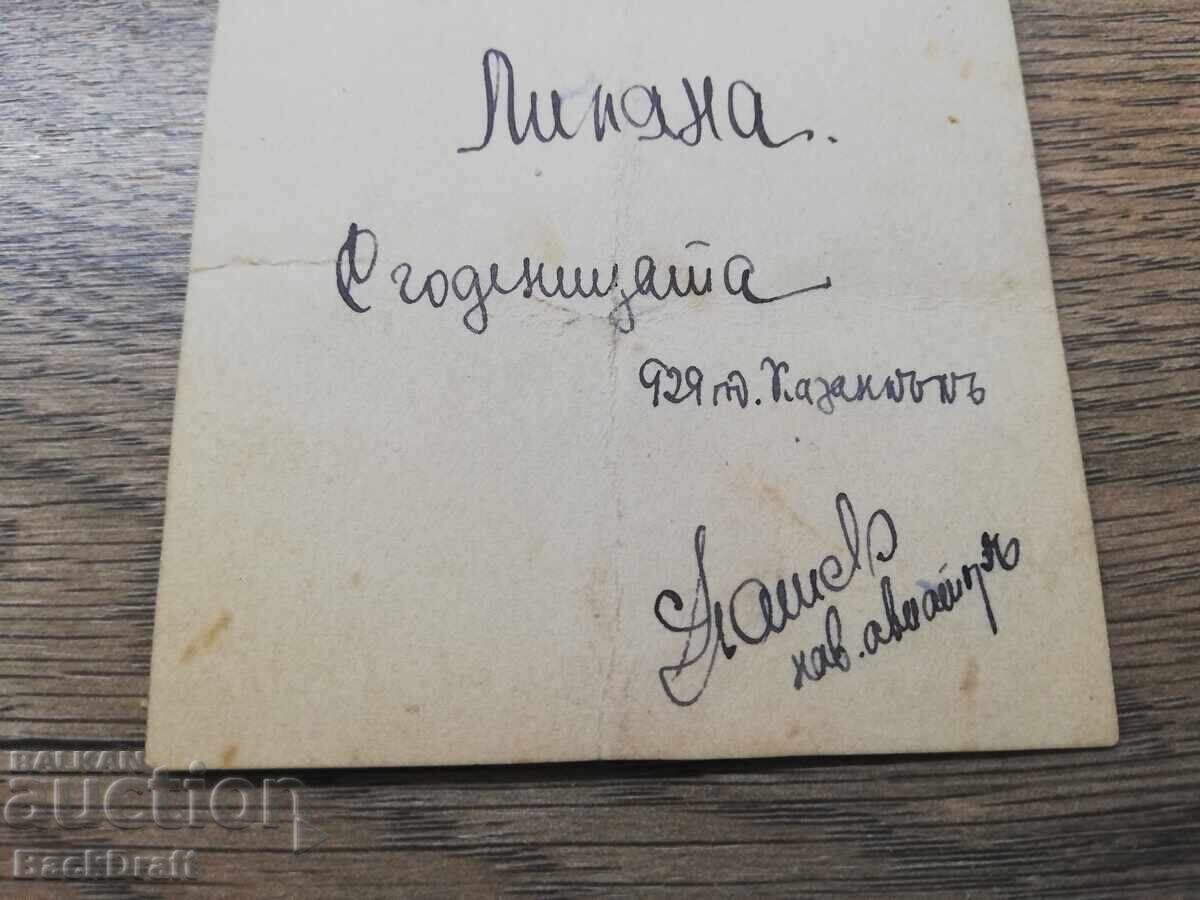 Лиляна.
Сгоденицата
929 г. Казанлъкъ
Дашев
кав. авиаторъ
BALKAN
auction
BackDraft